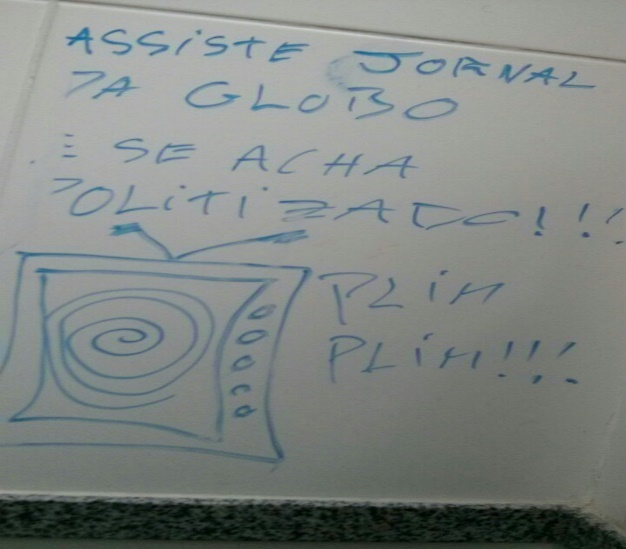 ASSiSTE JORNAL
DA GLOBO
E SE ACHA
POLiTiZADO!!!
PLiM
PLiM!!!